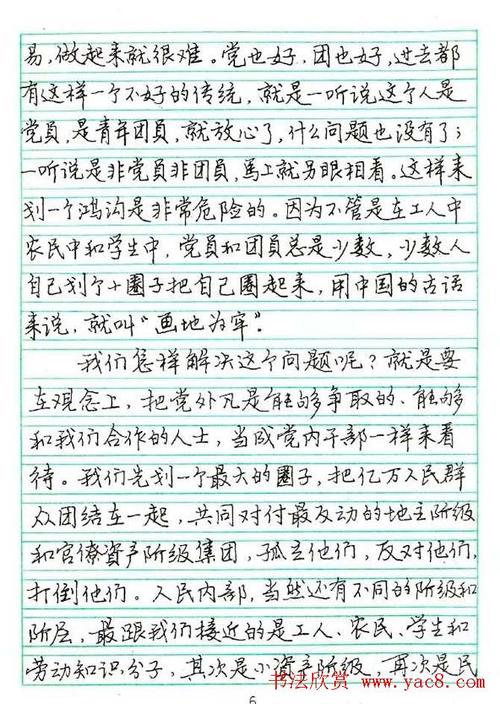 易,做起来就很难。党也好,团也好,过去都
有这样一个不好的传统,就是一听说这个人是
党員,是青年团員,就放心了,什么问题也没有了;
一听说是非党員非团員,馬上就另眼相看。这样来
划一个鸿沟是非常危险的。因为不管是在工人中
农民中和学生中,党員和团員总是少数,少数人
自己划个小圈子把自己圈起来,用中国的古话
来说,就叫“画地为牢”。
我们怎样解决这个问题呢?就是要
在观念上,把党外凡是能够争取的、能够
和我们合作的人士,当成党内干部一样来看
待。我们先划一个最大的圈子,把亿万人民群
众团结在一起,共同对付最反动的地主阶级
和官僚資产阶级集团,孤立他们,反对他们,
打倒他们。人民内部,当然还有不同的阶级和
阶层,最跟我们接近的是工人、农民、学生和
劳动知识分子,其次是小資产阶级,再次是民
6
书法欣赏 www.yac8.com